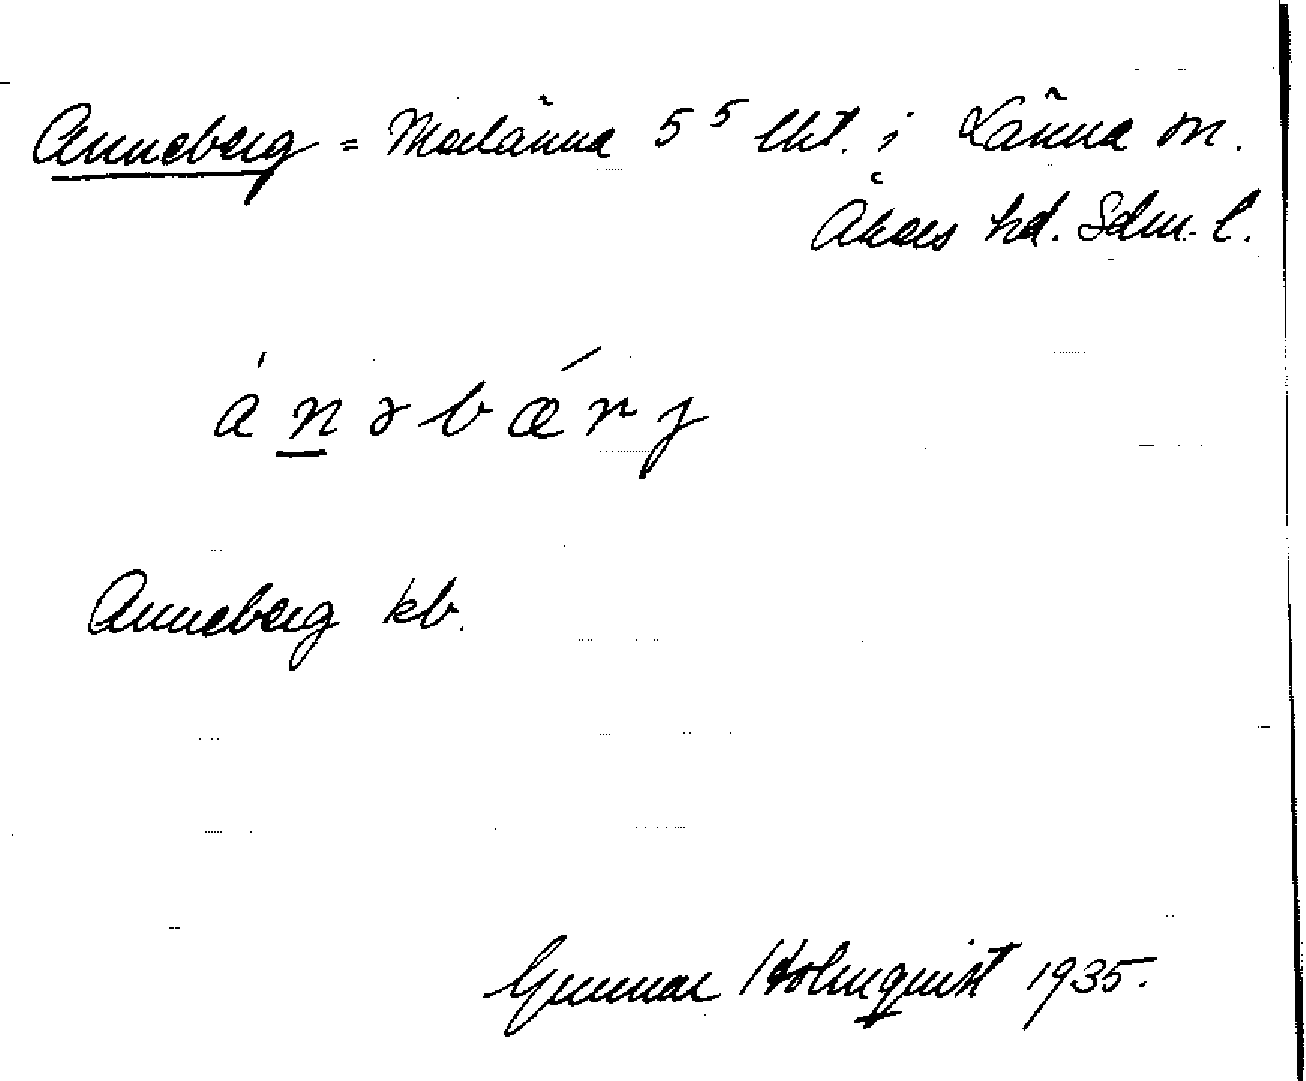 Anneberg = Marlänna 5⁵ lht. i Länna sn.
Åkers hd. Sdm. l.
án̲əbǽrj
Anneberg kb.
Gunnar Holmquist 1935.